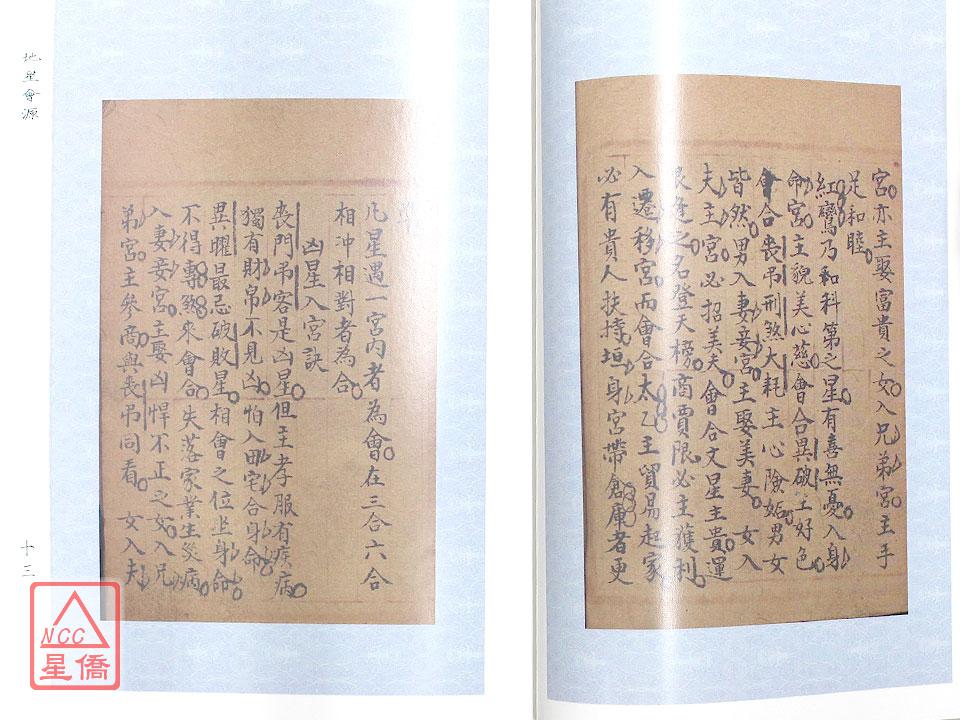 宮亦主娶富貴之女入兄弟宮主手
足和睦
紅鸞乃和科第之星有喜無憂入身
命宮主貌美心慈會合異破主好色
會合喪吊刑煞大耗主心險妬男女
皆然男入妻妾宮主娶美妻 女入
夫主宮必招美夫會合文星主貴運
限逢之名登天榜商賈限必主獲利
入遷移宮而會合太乙主貿易起家
必有貴人扶持垣身宮帶倉庫者更
凡星遇一宮內者為會在三合六合
相沖相對者為合
凶星入宮訣
喪門吊客是凶星但主孝服有疾病
獨有財帛不見凶怕入田宅合身命
異曜最忌破敗星相會之位坐身命
不得專煞來會合失落家業生災病
入妻妾宮主娶凶悍不正之女入兄
弟宮主參商與喪吊同看 女入夫
地星會源
十三
NCC
星僑